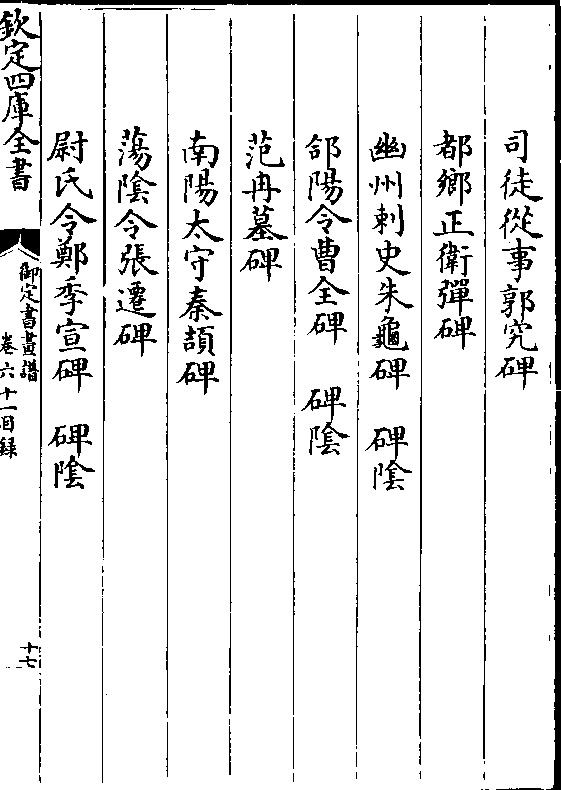 司徒從事郭究碑
都鄉正衛彈碑
幽州刺史朱龜碑　碑陰
郃陽令曹全碑　碑陰
范冉墓碑
南陽太守秦頡碑
蕩陰令張遷碑
尉氏令鄭季宣碑　碑陰
欽定四庫全書
御定書畫譜
卷六十一目録
十七